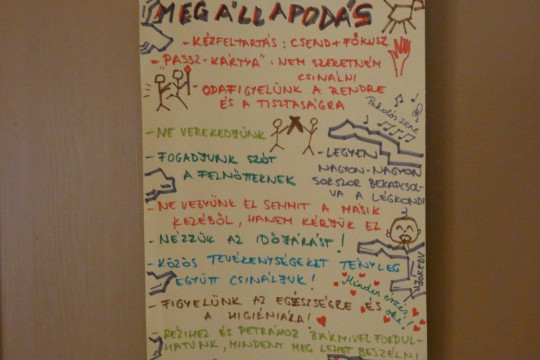 MEGÁLLAPODÁS
- KÉZFELTARTÁS: CSEND + FÓKUSZ
- "PASSZ-KÁRTYA": NEM SZERETNÉM
CSINÁLNI
- ODAFIGYELÜNK A RENDRE
ÉS A TISZTASÁGRA
- NE VEREKEDJÜNK
- FOGADJUNK SZÓT
A FELNŐTTEKNEK
zene
- LEGYEN
NAGYON-NAGYON
SOKSZOR BEKAPCSOL-
VA A LÉGKONDI
- NE VEGYÜNK EL SEMMIT A MÁSIK
KEZÉBŐL, HANEM KÉRJÜK EZ
- NÉZZÜK AZ IDŐJÁRÁST!
- KÖZÖS TEVÉKENYSÉGEKET TÉNYLEG
EGYÜTT CSINÁLJUK!
JÓKEDV
Minden érzés
oké!
- FIGYELÜNK AZ EGÉSZSÉGRE ÉS
A HIGIÉNIÁRA!
- REZIHEZ ÉS PETRÁHOZ BÁRMIVEL FORDUL-
HATUNK, MINDENT MEG LEHET BESZÉLNI